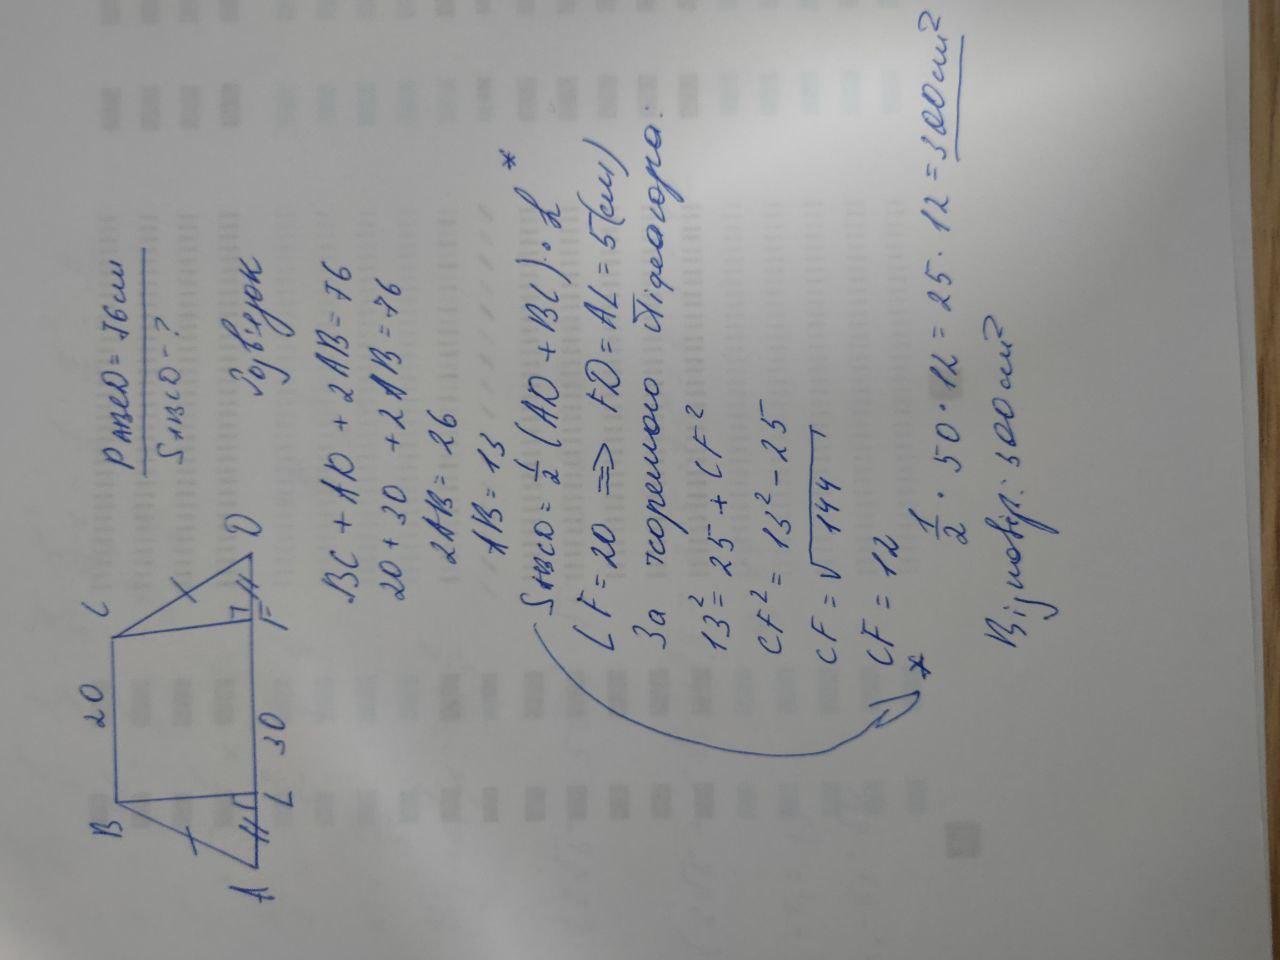 P ABCD = 76см
S ABCD - ?
B 20 C
A L 30 F D
Розв'язок
BC + AD + 2AB = 76
20 + 30 + 2AB = 76
2AB = 26
AB = 13
S ABCD = 1/2 (AD + BC) · h *
LF = 20 => FD = AL = 5 (см)
За теоремою Піфагора:
13² = 25 + CF²
CF² = 13² - 25
CF = √144
CF = 12
* 1/2 · 50 · 12 = 25 · 12 = 300 см²
Відповідь: 300 см²